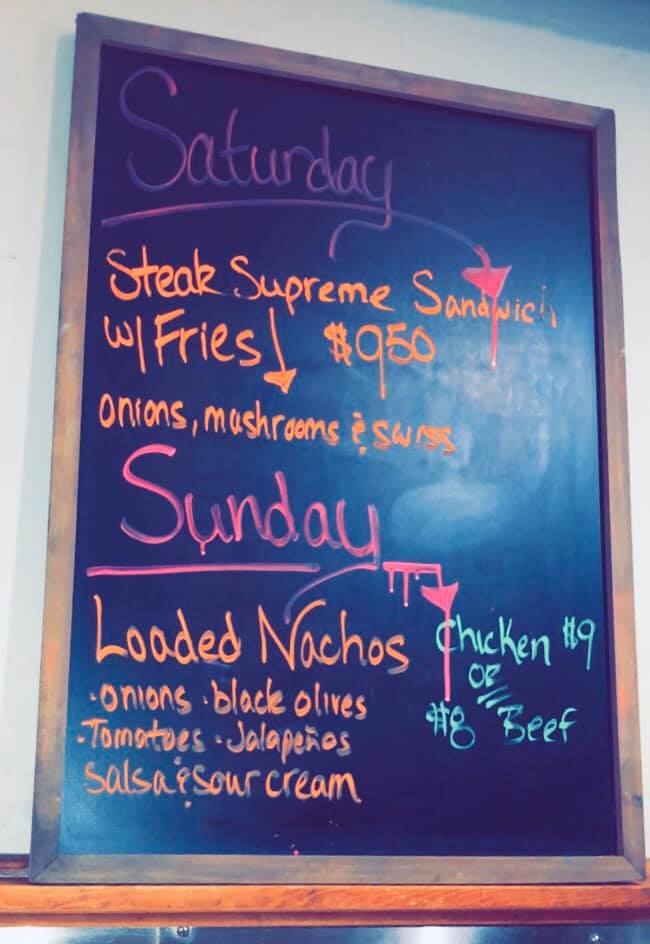 Saturday
Steak Supreme Sandwich
w/ Fries $950
onions, mushrooms & swiss
Sunday
Loaded Nachos
Chicken $9
OR
$8 Beef
· onions · black olives
· Tomatoes · Jalapeños
salsa & sour cream